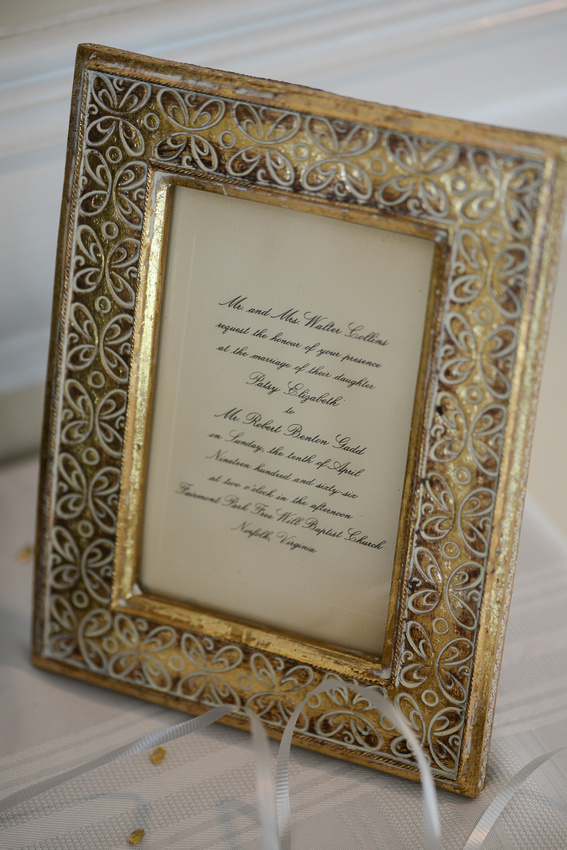 Mr. and Mrs. Walter Collins
request the honour of your presence
at the marriage of their daughter
Patsy Elizabeth
to
Mr. Robert Benton Gadd
on Sunday, the tenth of April
Nineteen hundred and sixty-six
at two o'clock in the afternoon
Fairmont Park Free Will Baptist Church
Norfolk, Virginia